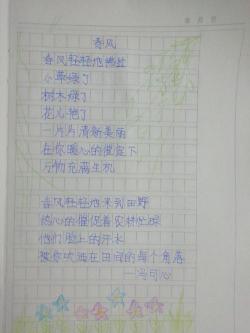 春风
春风轻轻地拂过
小草绿了
树木绿了
花儿艳了
一片片清新美丽
在你暖心的催促下
万物充满生机
春风轻轻地来到田野
热心的催促着农村
他们脸上的汗水
被你吹洒在田间的每个角落
—冯可心